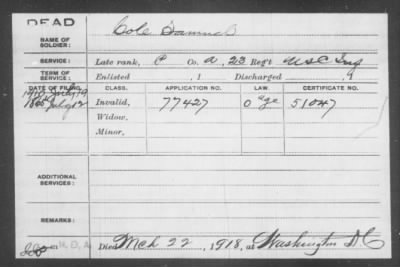 DEAD
NAME OF SOLDIER: Cole Samuel
SERVICE: Late rank, P Co. A, 23 Reg't U S C Inf
TERM OF SERVICE: Enlisted , 1 Discharged , 1
DATE OF FILING. CLASS. APPLICATION NO. LAW. CERTIFICATE NO.
July 19 Invalid, 77427 0 age 51047
July 12
Widow,
Minor,
ADDITIONAL SERVICES:
REMARKS:
Died Mch 22, 1918, at Washington D C